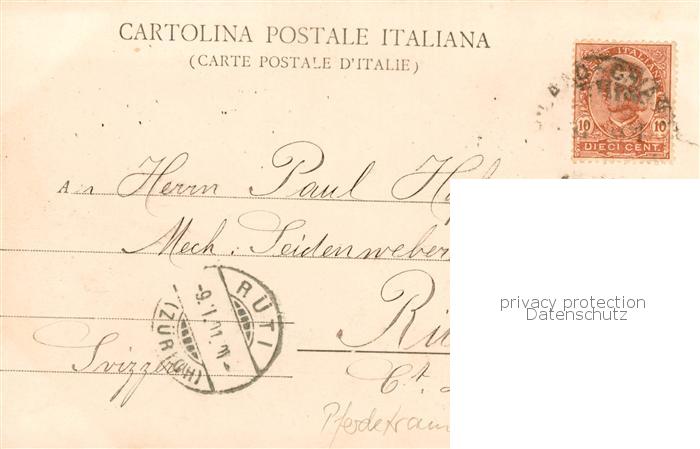 CARTOLINA POSTALE ITALIANA
(CARTE POSTALE D'ITALIE)
ITALIANE
10 10
DIECI CENT.
A Herrn Paul
Mech. Seidenweber
Svizzera
Ct.
RÜTI
(ZÜRICH)
privacy protection
Datenschutz